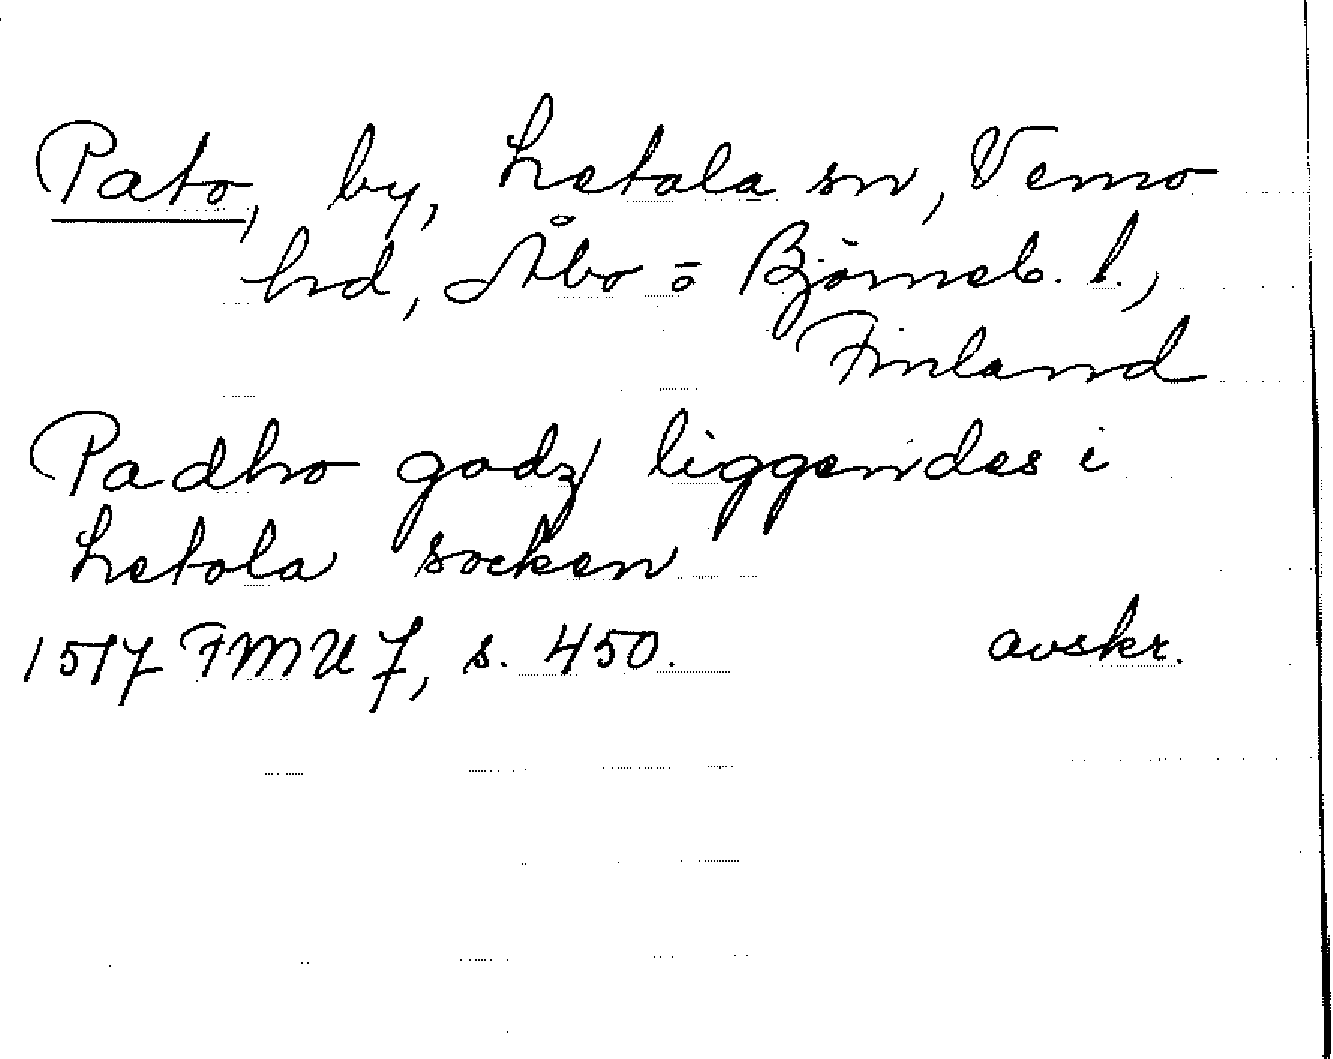 Pato, by, Letala sn, Vemo
hd, Åbo = Björneb. l.,
Finland
Padho godz liggendes i
Letola socken
1517 FMU 7, s. 450. avskr.